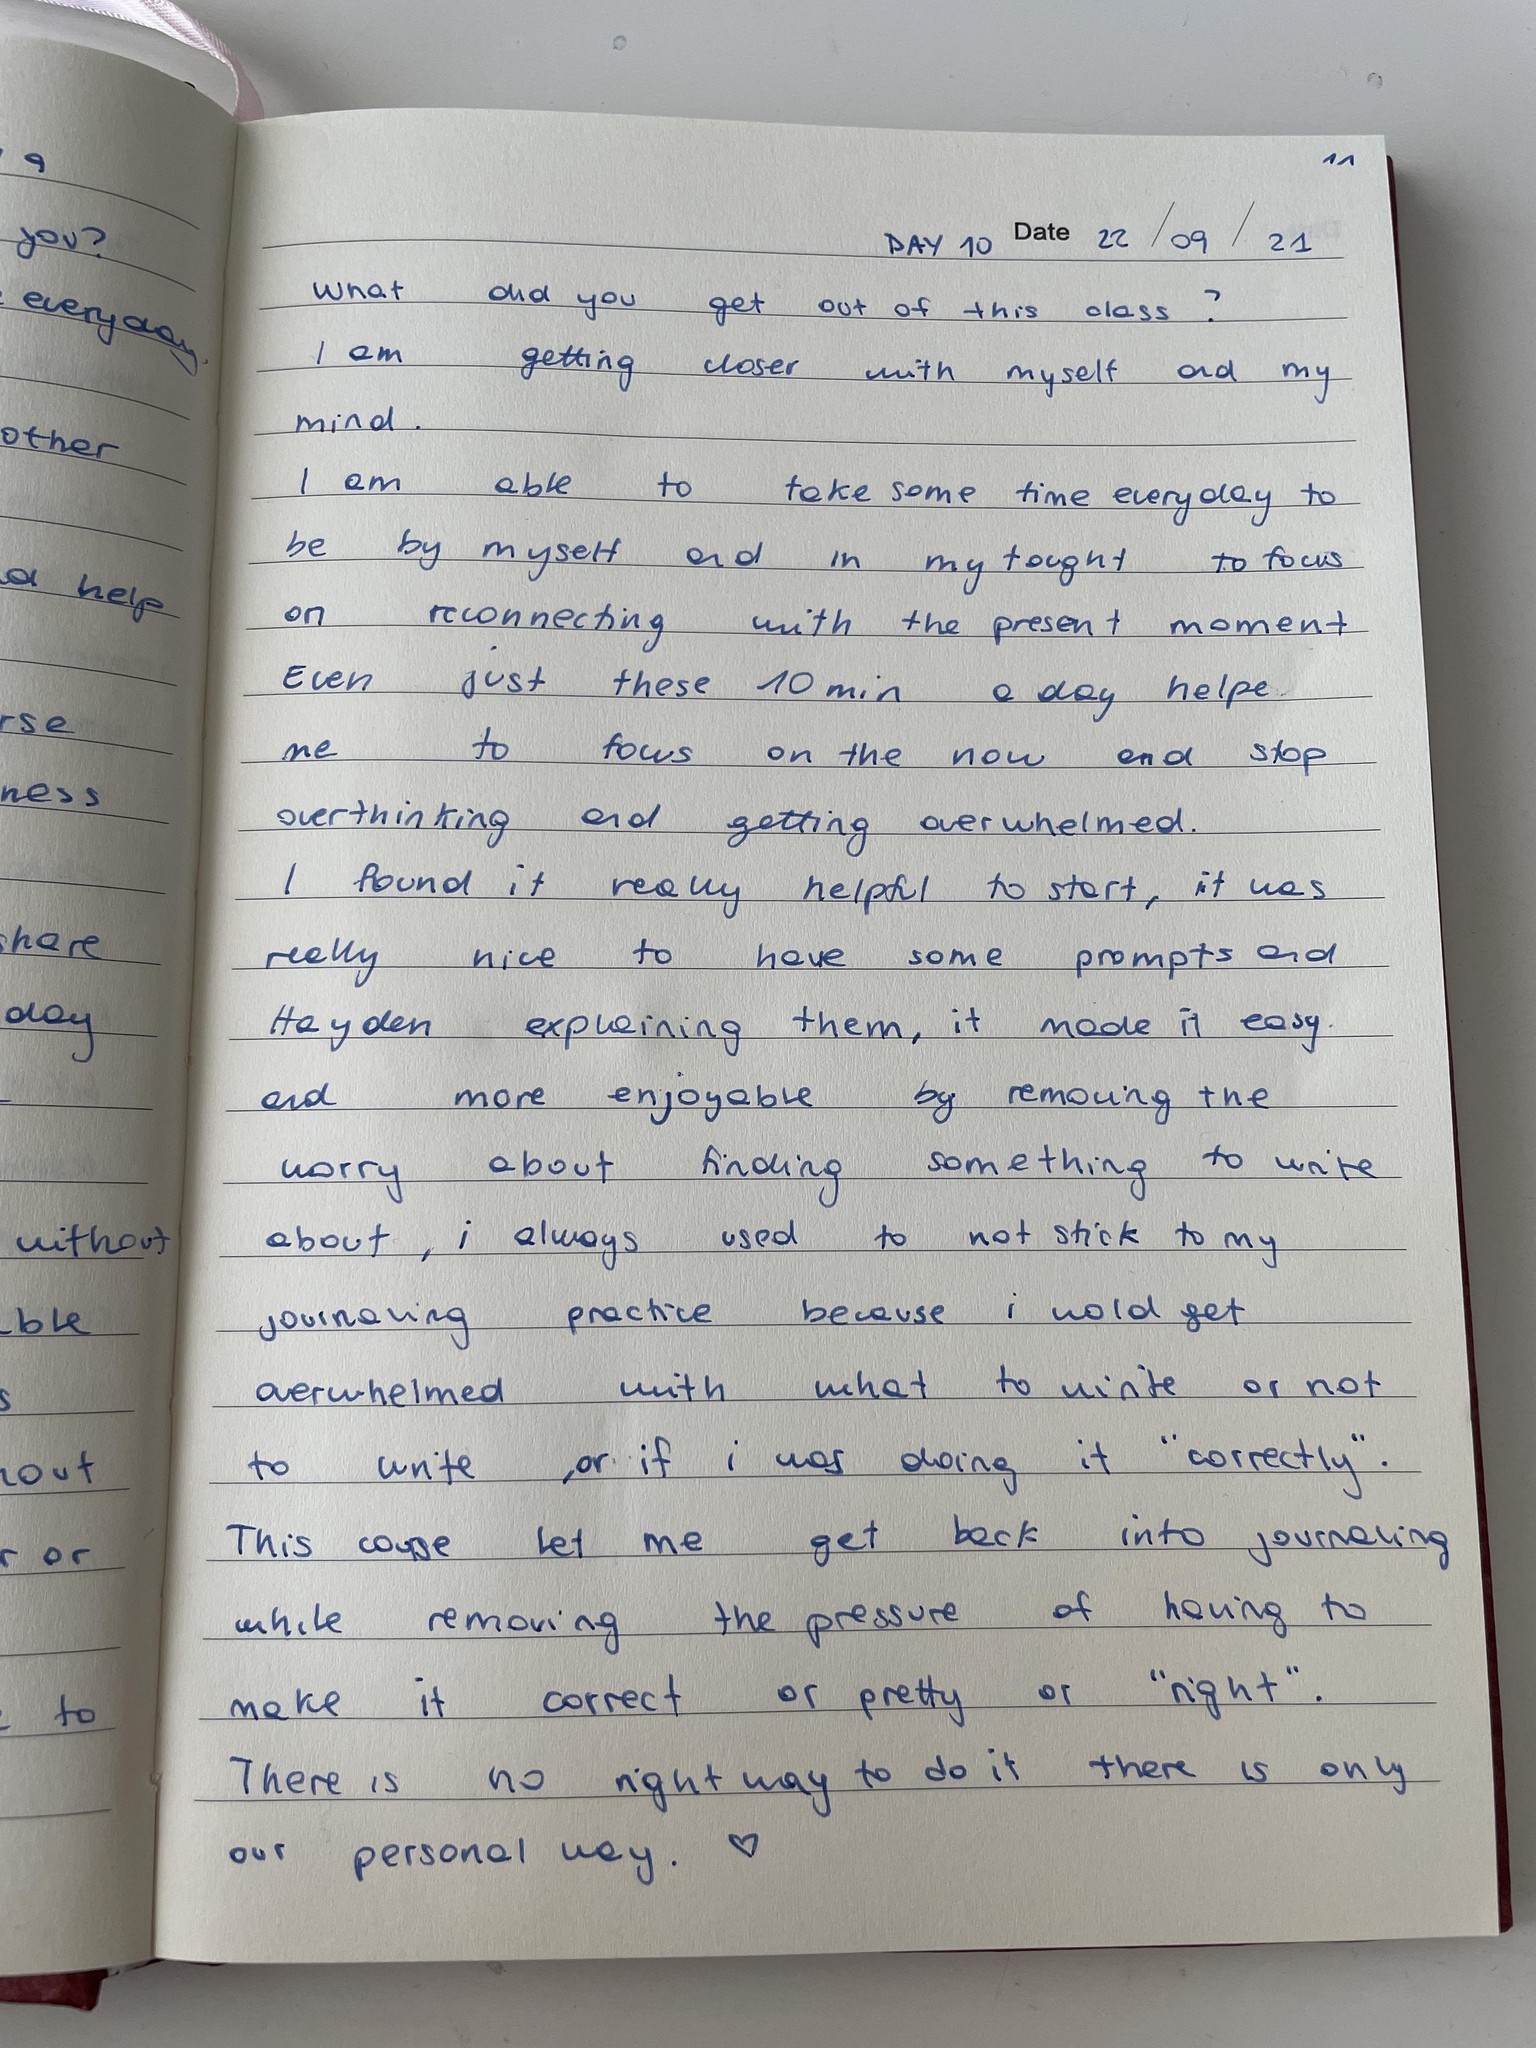 9
you?
everyday.
other
help
rse
ness
share
day
without
ble
s
hout
r or
to
11
DAY 10 Date 22/09/21
What did you get out of this class?
I am getting closer with myself and my
mind.
I am able to take some time everyday to
be by myself and in my tought to focus
on reconnecting with the present moment
Even just these 10 min a day helpe
me to focus on the now and stop
overthinking and getting overwhelmed.
I found it really helpful to start, it was
really nice to have some prompts and
Hayden explaining them, it made it easy
and more enjoyable by removing the
worry about finding something to write
about, i always used to not stick to my
journaling practice because i wold get
overwhelmed with what to write or not
to write, or if i was doing it "correctly".
This couse let me get back into journaling
while removing the pressure of having to
make it correct or pretty or "right".
There is no right way to do it there is only
our personal way. ♡